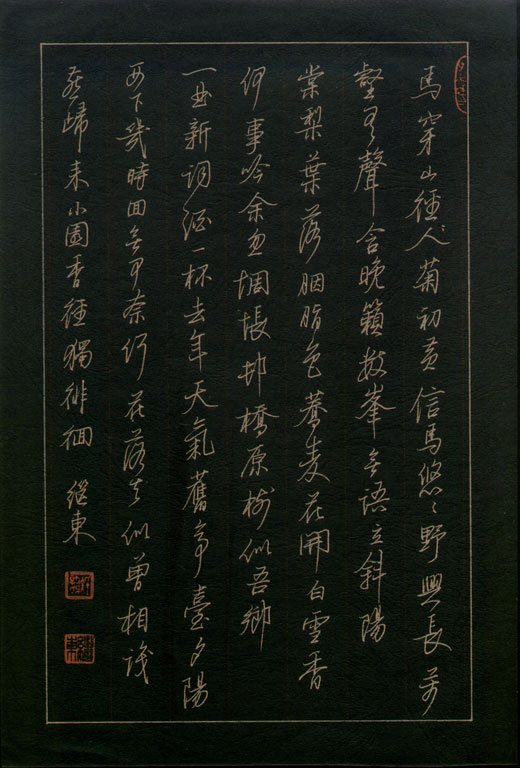 馬穿山徑人菊初黃信馬悠々野興長萬
壑有聲含晚籟数峯無語立斜陽
棠梨葉落胭脂色蕎麦花開白雪香
何事吟余忽惆悵邨橋原樹似吾鄉
一曲新詞酒一杯去年天氣舊亭臺夕陽
西下幾時回無可奈何花落去似曾相識
燕歸来小園香徑獨徘徊 继東